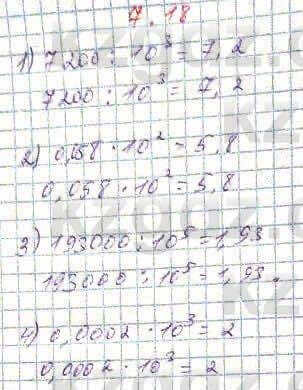 7.18
1) 7200 : 10³ = 7,2
7200 : 10³ = 7,2
2) 0,058 · 10² = 5,8
0,058 · 10² = 5,8
3) 193000 : 10⁵ = 1,93
193000 : 10⁵ = 1,93.
4) 0,0002 · 10³ = 2
0,0002 · 10³ = 2